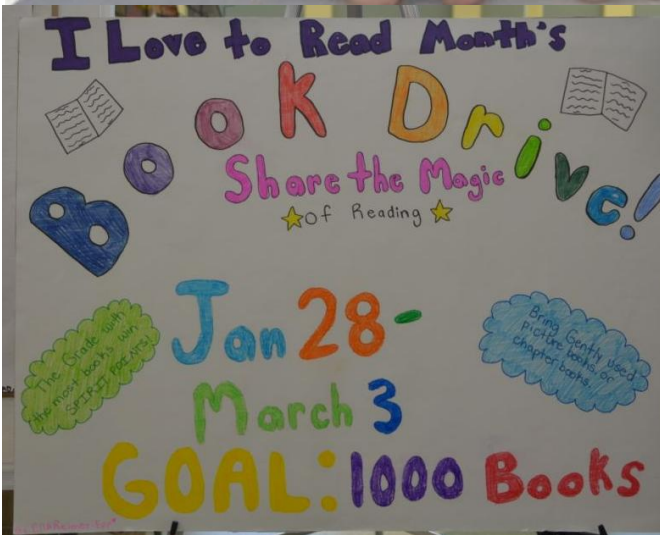 I Love to Read Month's
BOOK Drive!
Share the Magic
of Reading
Jan 28-
March 3
The Grade with
the most books win
SPIRIT POINTS!
Bring Gently used
picture books or
chapter books.
GOAL: 1000 Books